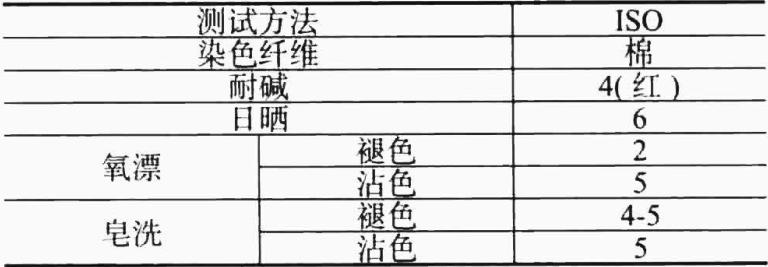 测试方法 ISO
染色纤维 棉
耐碱 4(红)
日晒 6
氧漂 褪色 2
沾色 5
皂洗 褪色 4-5
沾色 5